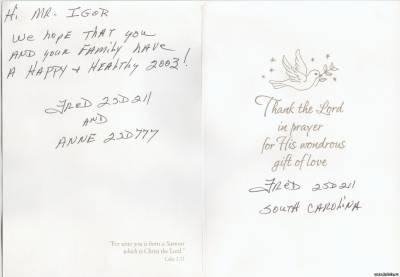 Hi MR. IGOR
WE HOPE THAT YOU
AND YOUR FAMILY HAVE
A HAPPY + HEALTHY 2003!
FRED 25D211
AND
ANNE 25D777
"For unto you is born a Saviour
which is Christ the Lord."
Luke 2:11
Thank the Lord
in prayer
for His wondrous
gift of love
FRED 25D211
SOUTH CAROLINA